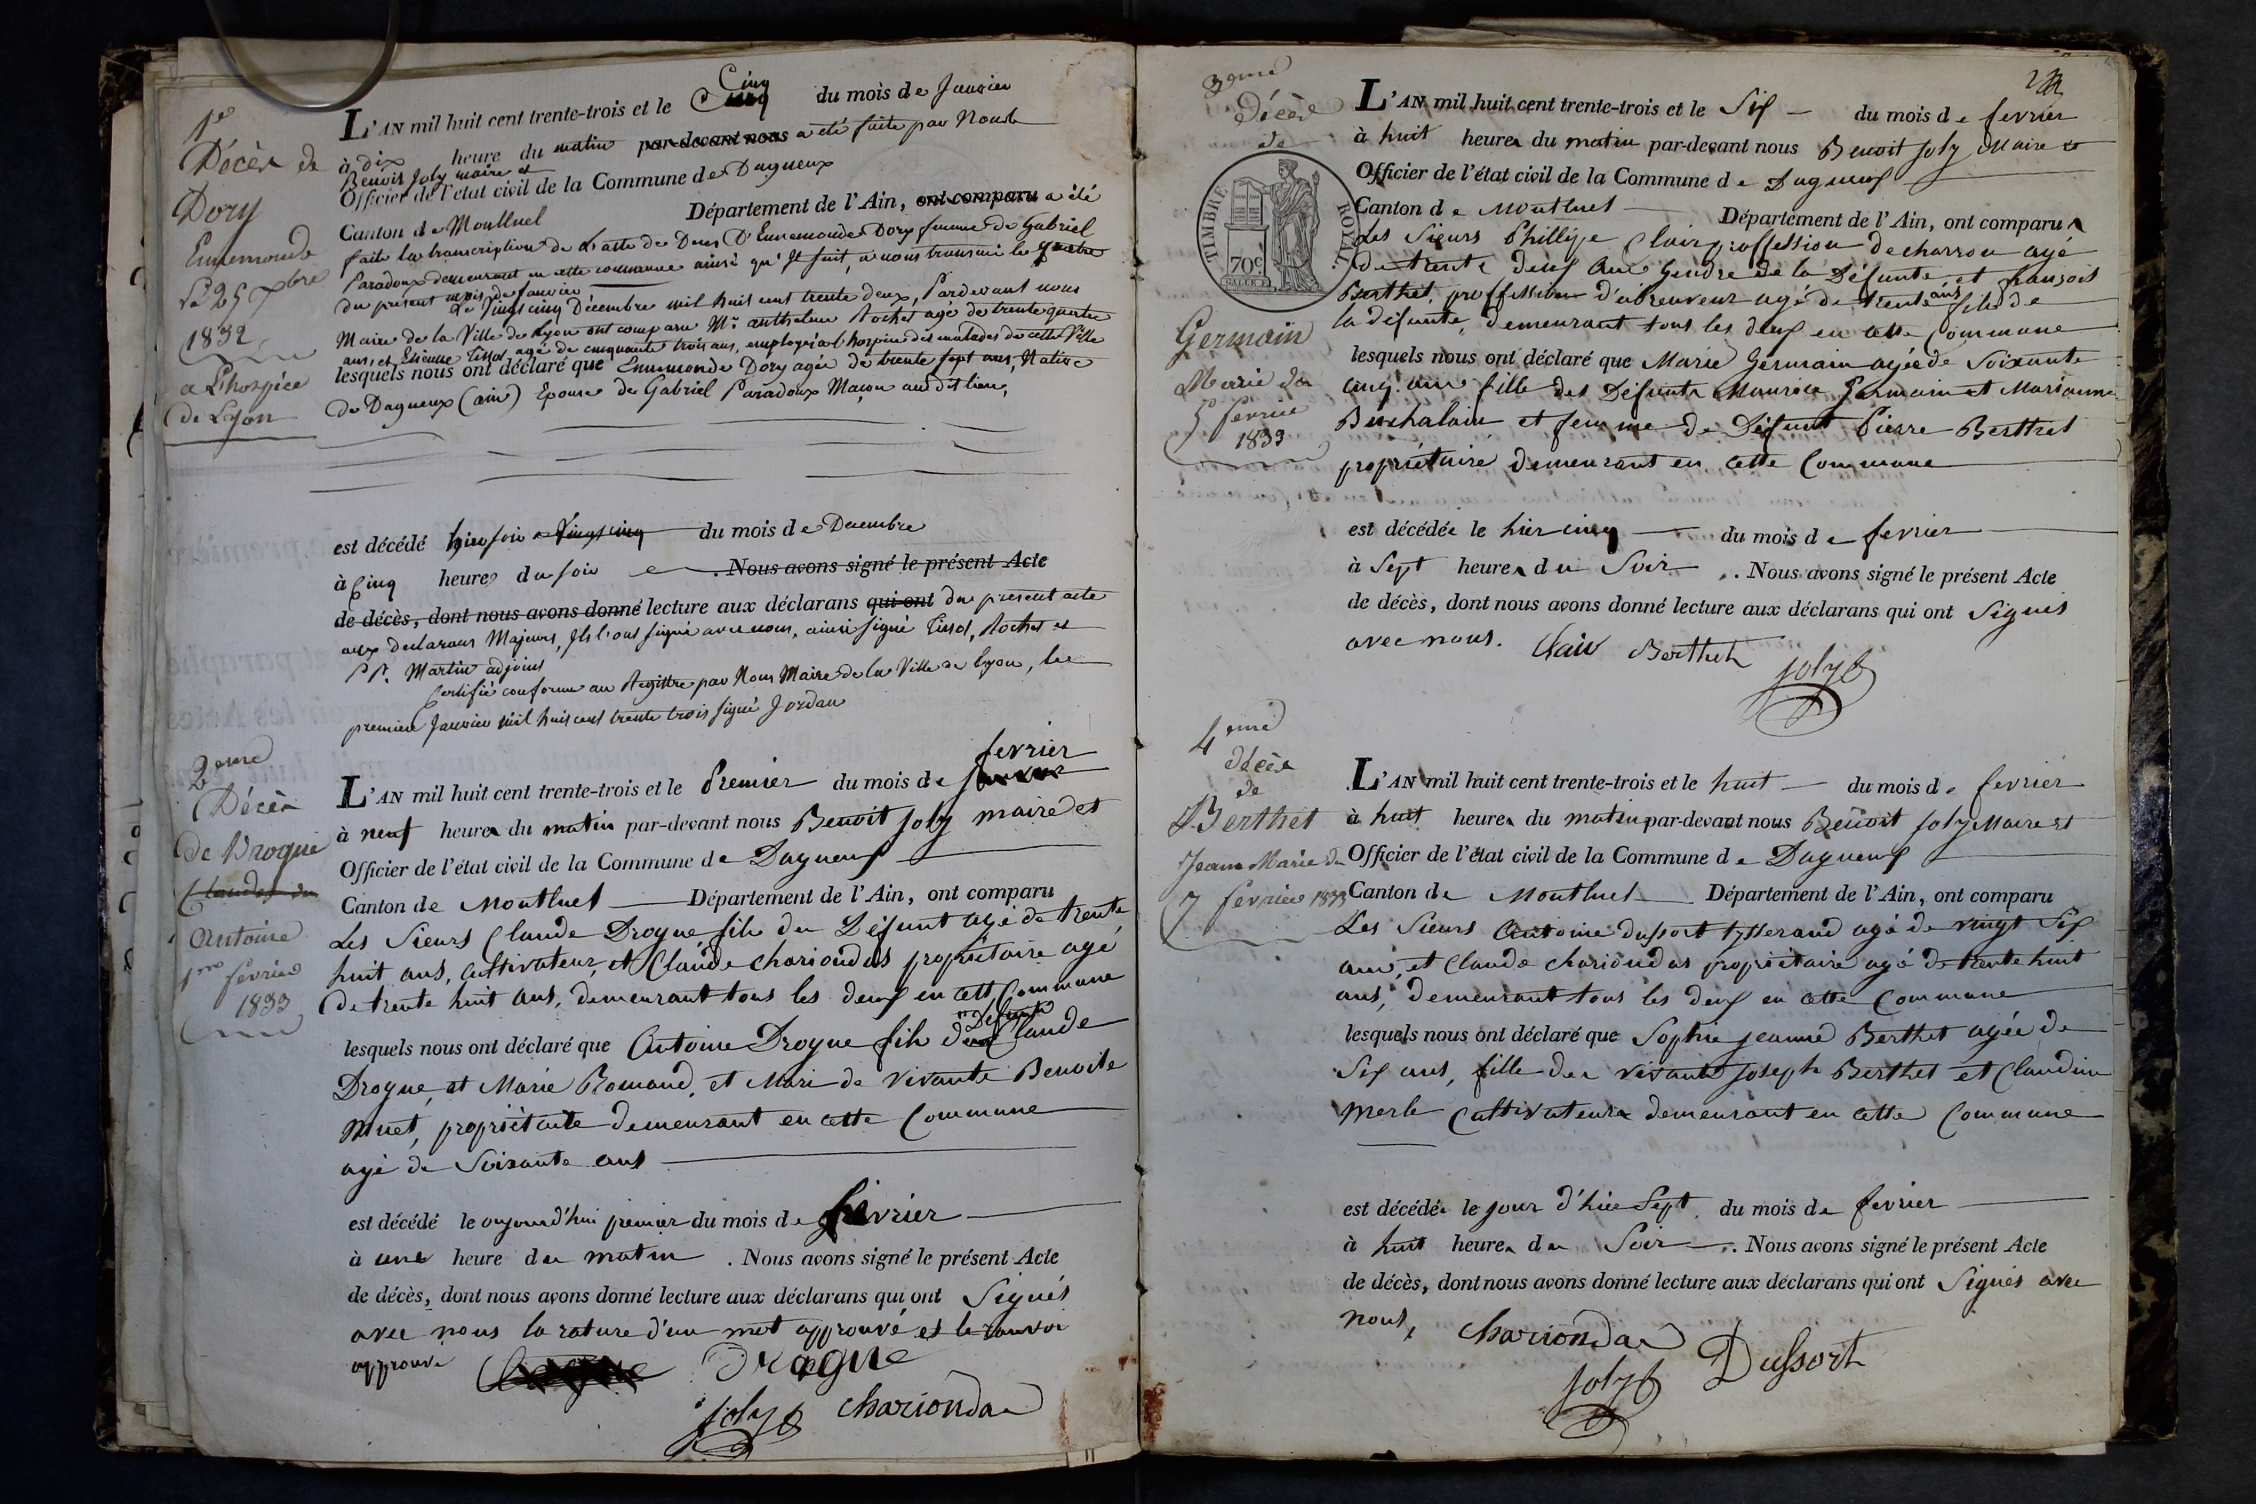 1e
Décès de
Dory
Ennemonde
le 25 Xbre
1832
a L'hospice
de Lyon
L'AN mil huit cent trente-trois et le Cinq du mois de Janvier
à dix heure du matin par-devant nous a été faite par Nous
Benoit Joly maire et
Officier de l'état civil de la Commune de Dagneux
Canton de Montluel Département de l'Ain, ont comparu a été
faite la transcription de L'acte de Deces D'Ennemonde Dory femme de Gabriel
Paradoux demeurant en cette commune ainsi qu'il suit, a nous transmi le quatre
du present mois de Janvier
Le Vingt cinq Décembre mil huit cent trente deux, Pardevant nous
Maire de la Ville de Lyon ont comparu Mr anthelme Rochet agé de trente quatre
ans, et Etienne Tissot agé de cinquante trois ans, employés a l'hospice des malades de cette Ville
lesquels nous ont déclaré que Ennemonde Dory agée de trente sept ans, Native
de Dagneux (ain) Epouse de Gabriel Paradoux Maçon audit lieu,
est décédé hier soir Vingt cinq du mois de Decembre
à Cinq heures du soir . Nous avons signé le présent Acte
de décès, dont nous avons donné lecture aux déclarans qui ont du present acte
aux declarans Majeurs, Ils l'ont signé avec nous, ainsi signé Tissot, Rochet et
Martin adjoint
Certifié conforme au Registre par Nous Maire de la Ville de Lyon, le
premier Janvier mil huit cent trente trois signé Jordan
2eme
Décès
de Drogue
Claude du
Antoine
1er fevrier
1833
fevrier
L'AN mil huit cent trente-trois et le Premier du mois de janvier
à neuf heures du matin par-devant nous Benoit Joly maire et
Officier de l'état civil de la Commune de Dagneux
Canton de Montluel Département de l'Ain, ont comparu
Les Sieurs Claude Drogue fils du Défunt agé de trente
huit ans, cultivateur, et Claude chariondas propriétaire agé
de trente huit ans, demeurant tous les deux en cette Commune
lesquels nous ont déclaré que Antoine Drogue fils de Défunts Claude
Drogue, et Marie Romand, et Mari de vivante Benoite
Muet, propriétaire demeurant en cette Commune
agé de Soixante ans
est décédé le aujourd'hui premier du mois de février
à une heure du matin . Nous avons signé le présent Acte
de décès, dont nous avons donné lecture aux déclarans qui ont Signés
avec nous la rature d'un mot approuvé et le renvoi
approuvé Drogue
Joly B chariondas
3eme
Décès
de
TIMBRE ROYAL
70c
Germain
Marie du
5 fevrier
1833
L'AN mil huit cent trente-trois et le Six du mois de fevrier
à huit heures du matin par-devant nous Benoit Joly Maire et
Officier de l'état civil de la Commune de Dagneux
Canton de Montluel Département de l'Ain, ont comparu
Les Sieurs Phillipe Clair proffession de charron agé
de trente deux ans Gendre de la Défunte et françois
Berthet, proffession d'abreuveur agé de trente ans fils de
la défunte, demeurant tous les deux en cette Commune
lesquels nous ont déclaré que Marie Germain agée de Soixante
cinq ans fille des Défunts Maurice Germain et Marianne
Buchalain et femme de Défunt Pierre Berthet
propriétaire demeurant en cette Commune
est décédée le hier cinq du mois de fevrier
à Sept heures du Soir . Nous avons signé le présent Acte
de décès, dont nous avons donné lecture aux déclarans qui ont Signés
avec nous. Clair Berthet
Joly B
4eme
décès
de
Berthet
Jeanne Marie du
7 fevrier 1833
L'AN mil huit cent trente-trois et le huit du mois de fevrier
à huit heures du matin par-devant nous Benoit Joly Maire et
Officier de l'état civil de la Commune de Dagneux
Canton de Montluel Département de l'Ain, ont comparu
Les Sieurs Antoine Dussort tysserand agé de vingt Six
ans, et Claude chariondas propriétaire agé de trente huit
ans, demeurant tous les deux en cette Commune
lesquels nous ont déclaré que Sophie jeanne Berthet agée de
Six ans, fille de vivants Joseph Berthet et Claudine
Merle Cultivateurs demeurant en cette Commune
est décédée le jour d'hier Sept du mois de fevrier
à huit heures du Soir . Nous avons signé le présent Acte
de décès, dont nous avons donné lecture aux déclarans qui ont Signés avec
nous, chariondas Dussort
Joly B